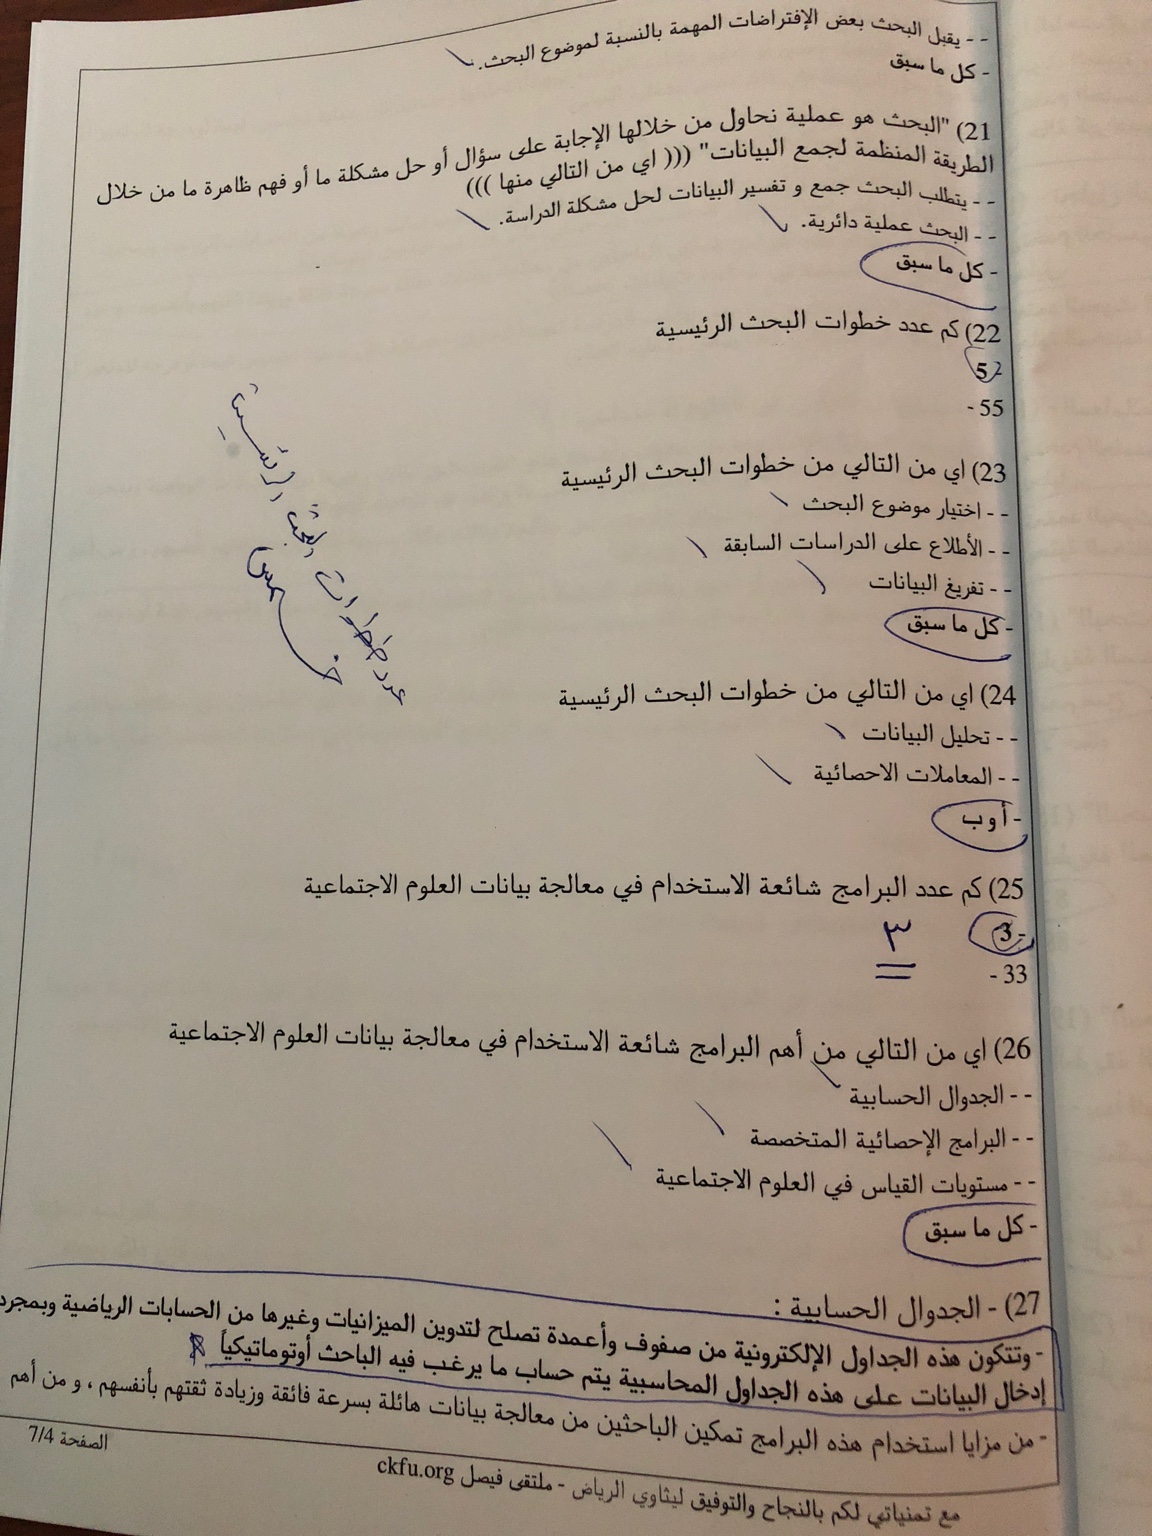 - - يقبل البحث بعض الإفتراضات المهمة بالنسبة لموضوع البحث.
- كل ما سبق
21) "البحث هو عملية نحاول من خلالها الإجابة على سؤال أو حل مشكلة ما أو فهم ظاهرة ما من خلال
الطريقة المنظمة لجمع البيانات" ((( اي من التالي منها )))
- - يتطلب البحث جمع و تفسير البيانات لحل مشكلة الدراسة.
- - البحث عملية دائرية.
- كل ما سبق
22) كم عدد خطوات البحث الرئيسية
5
- 55
عدد خطوات البحث الرئيسية
خمس
23) اي من التالي من خطوات البحث الرئيسية
- - اختيار موضوع البحث
- - الأطلاع على الدراسات السابقة
- - تفريغ البيانات
- كل ما سبق
24) اي من التالي من خطوات البحث الرئيسية
- - تحليل البيانات
- - المعاملات الاحصائية
- أ و ب
25) كم عدد البرامج شائعة الاستخدام في معالجة بيانات العلوم الاجتماعية
- 3
٣
- 33
26) اي من التالي من أهم البرامج شائعة الاستخدام في معالجة بيانات العلوم الاجتماعية
- - الجدوال الحسابية
- - البرامج الإحصائية المتخصصة
- - مستويات القياس في العلوم الاجتماعية
- كل ما سبق
27) - الجدوال الحسابية :
- وتتكون هذه الجداول الإلكترونية من صفوف وأعمدة تصلح لتدوين الميزانيات وغيرها من الحسابات الرياضية وبمجرد
إدخال البيانات على هذه الجداول المحاسبية يتم حساب ما يرغب فيه الباحث أوتوماتيكياً
- من مزايا استخدام هذه البرامج تمكين الباحثين من معالجة بيانات هائلة بسرعة فائقة وزيادة ثقتهم بأنفسهم ، و من أهم
الصفحة 7/4
مع تمنياتي لكم بالنجاح والتوفيق ليثاوي الرياض - ملتقى فيصل ckfu.org